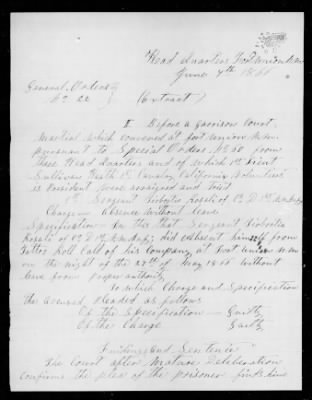 Head Quarters Fort Union N.M.
June 7th 1866
General Orders
No 22
(Extract)
I Before a garrison Court
Martial which convened at Fort Union N.M.
pursuant to Special Orders No 60 from
these Head Quarters and of which 1st Lieut
Sullivan Heath 1st Cavalry California Volunteers
is President were arraigned and tried
1st Sergeant
Charge Absence without leave
Specification In this that Sergeant
of Co D 1st did absent himself from
Tattoo Roll Call of his Company, at Fort Union N.M.
on the night of the 27th of May 1866 without
leave from proper authority
To which Charge and Specification
the accused, Pleaded as follows
Of the Specification — Guilty
Of the Charge Guilty
Finding and Sentence
The Court after Mature Deliberation
confirms the plea of the prisoner finds him